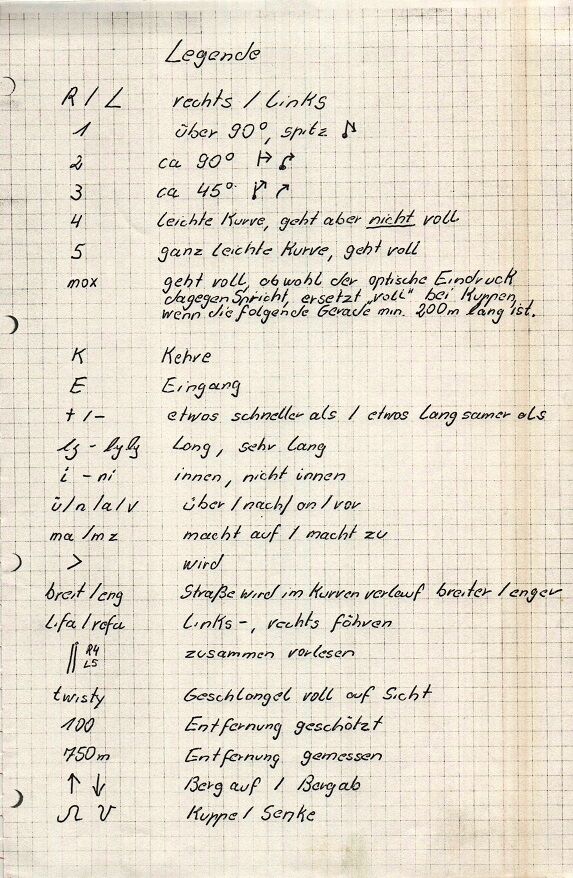 Legende
R / L rechts / links
1 über 90°, spitz
2 ca 90°
3 ca 45°
4 leichte Kurve, geht aber nicht voll
5 ganz leichte Kurve, geht voll
max geht voll, obwohl der optische Eindruck
dagegen spricht, ersetzt "voll" bei Kuppen,
wenn die folgende Gerade min. 200m lang ist.
K Kehre
E Eingang
+ / - etwas schneller als / etwas langsamer als
lg - lglg Lang, sehr lang
i - ni innen, nicht innen
ü/n/a/v über / nach / an / vor
ma/mz macht auf / macht zu
> wird
breit / eng Straße wird im Kurvenverlauf breiter / enger
Lifa / refa Links-, rechts fahren
|| R4 L5 zusammen vorlesen
twisty Geschlängel voll auf Sicht
100 Entfernung geschätzt
750m Entfernung gemessen
↑ ↓ Bergauf / Bergab
Ω V Kuppe / Senke